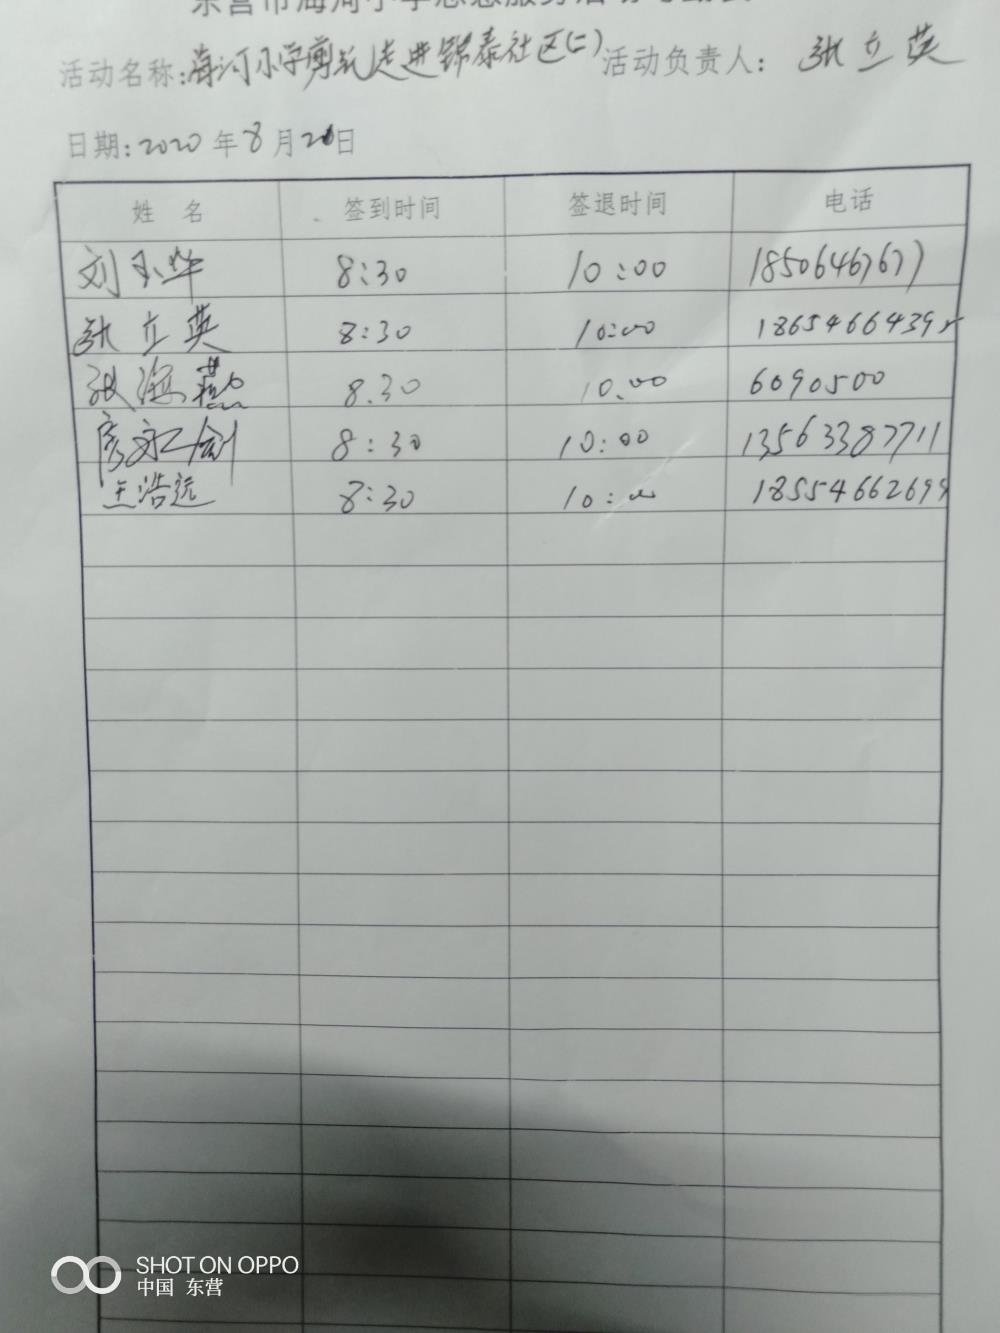 东营市海河小学志愿服务活动考勤表
活动名称:海河小学剪纸走进锦泰社区(二) 活动负责人: 张立英
日期:2020年8月20日
姓 名 签到时间 签退时间 电话
刘玉华 8:30 10:00 18506467677
张立英 8:30 10:00 1865466439
张海燕 8.30 10.00 6090500
8:30 10:00 13563387711
王浩远 8:30 10:00 18554662699
SHOT ON OPPO
中国 东营